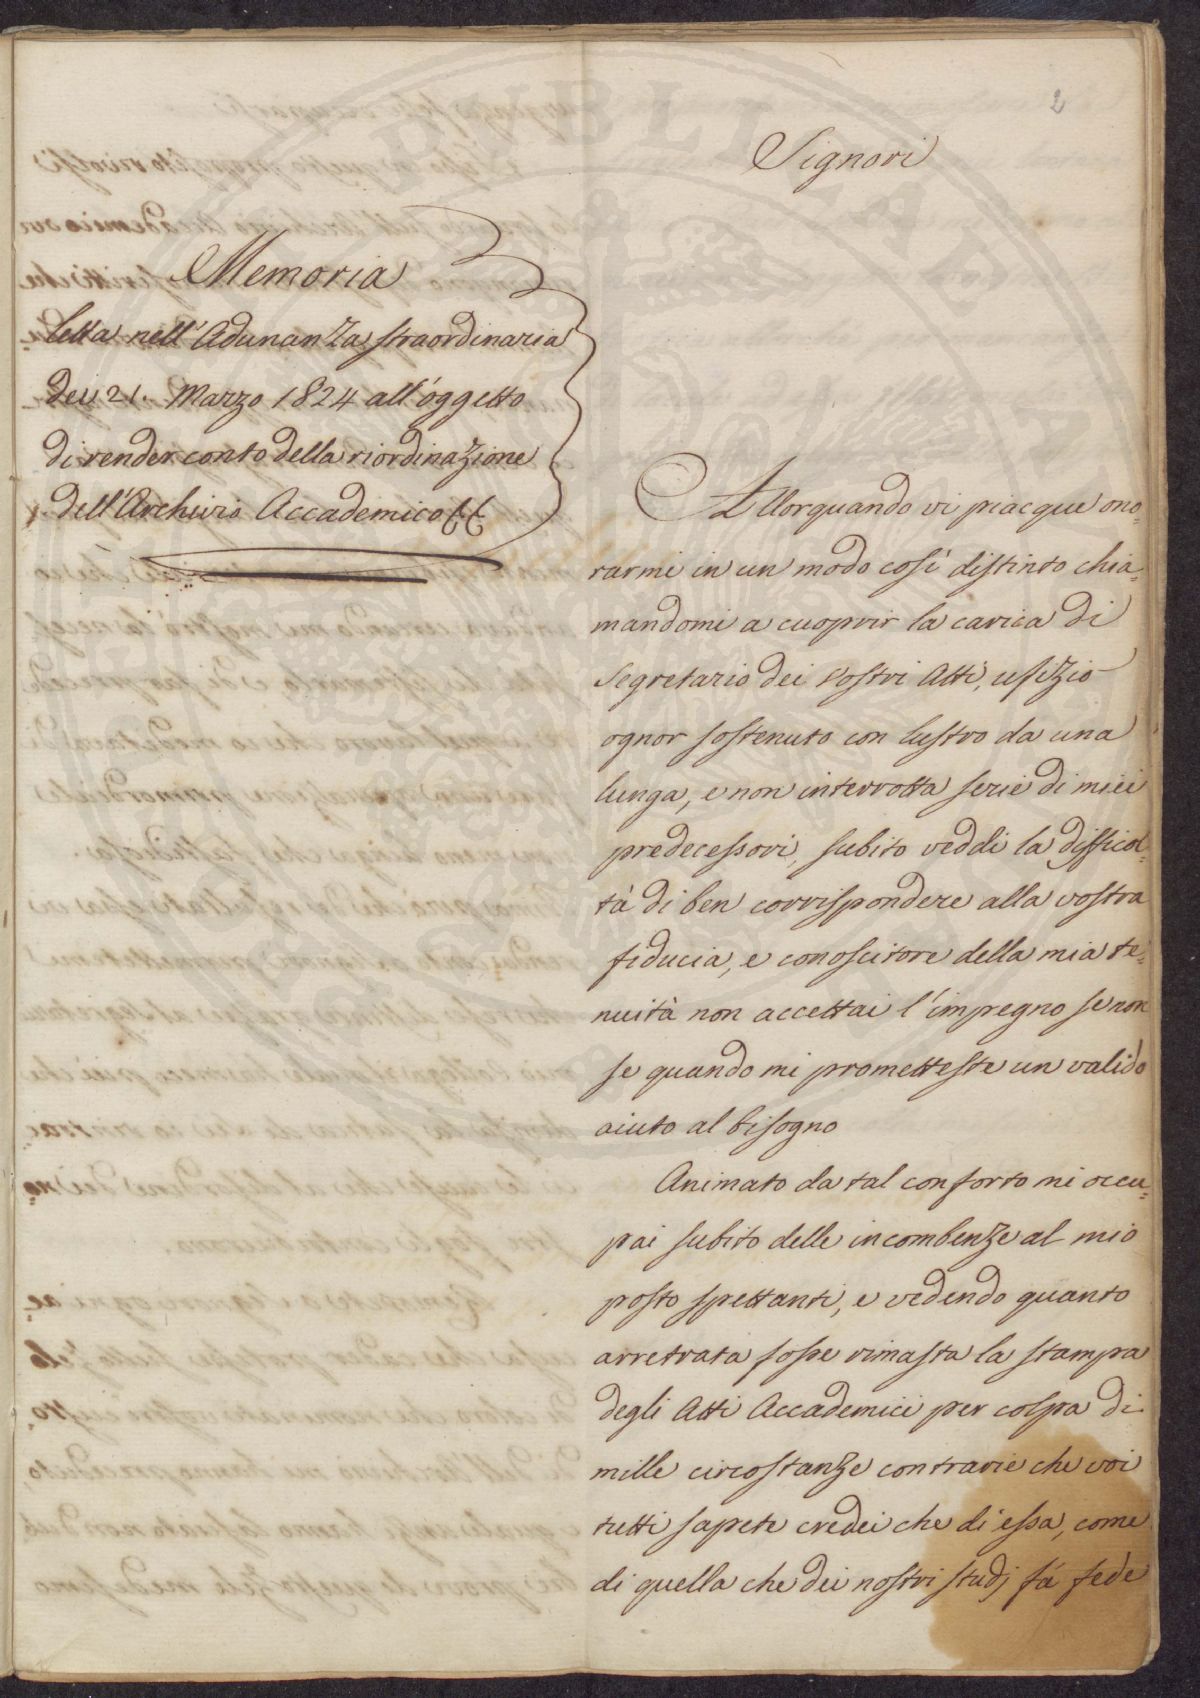 2
Signori
Memoria
letta nell' Adunanza straordinaria
dei 21. Marzo 1824 all' oggetto
di render conto della riordinazione
dell' Archivio Accademico
Allorquando vi piacque ono=
rarmi in un modo così distinto chia=
mandomi a cuoprir la carica di
Segretario dei Vostri Atti, ufizio
ognor sostenuto con lustro da una
lunga, e non interrotta serie di miei
predecessori, subito veddi la difficol=
tà di ben corrispondere alla vostra
fiducia, e conoscitore della mia te=
nuità non accettai l'impegno se non
se quando mi prometteste un valido
aiuto al bisogno
Animato da tal conforto mi occu=
pai subito delle incombenze al mio
posto spettanti, e vedendo quanto
arretrata fosse rimasta la stampa
degli Atti Accademici per colpa di
mille circostanze contrarie che voi
tutti sapete credei che di essa, come
di quella che dei nostri studj fà fede